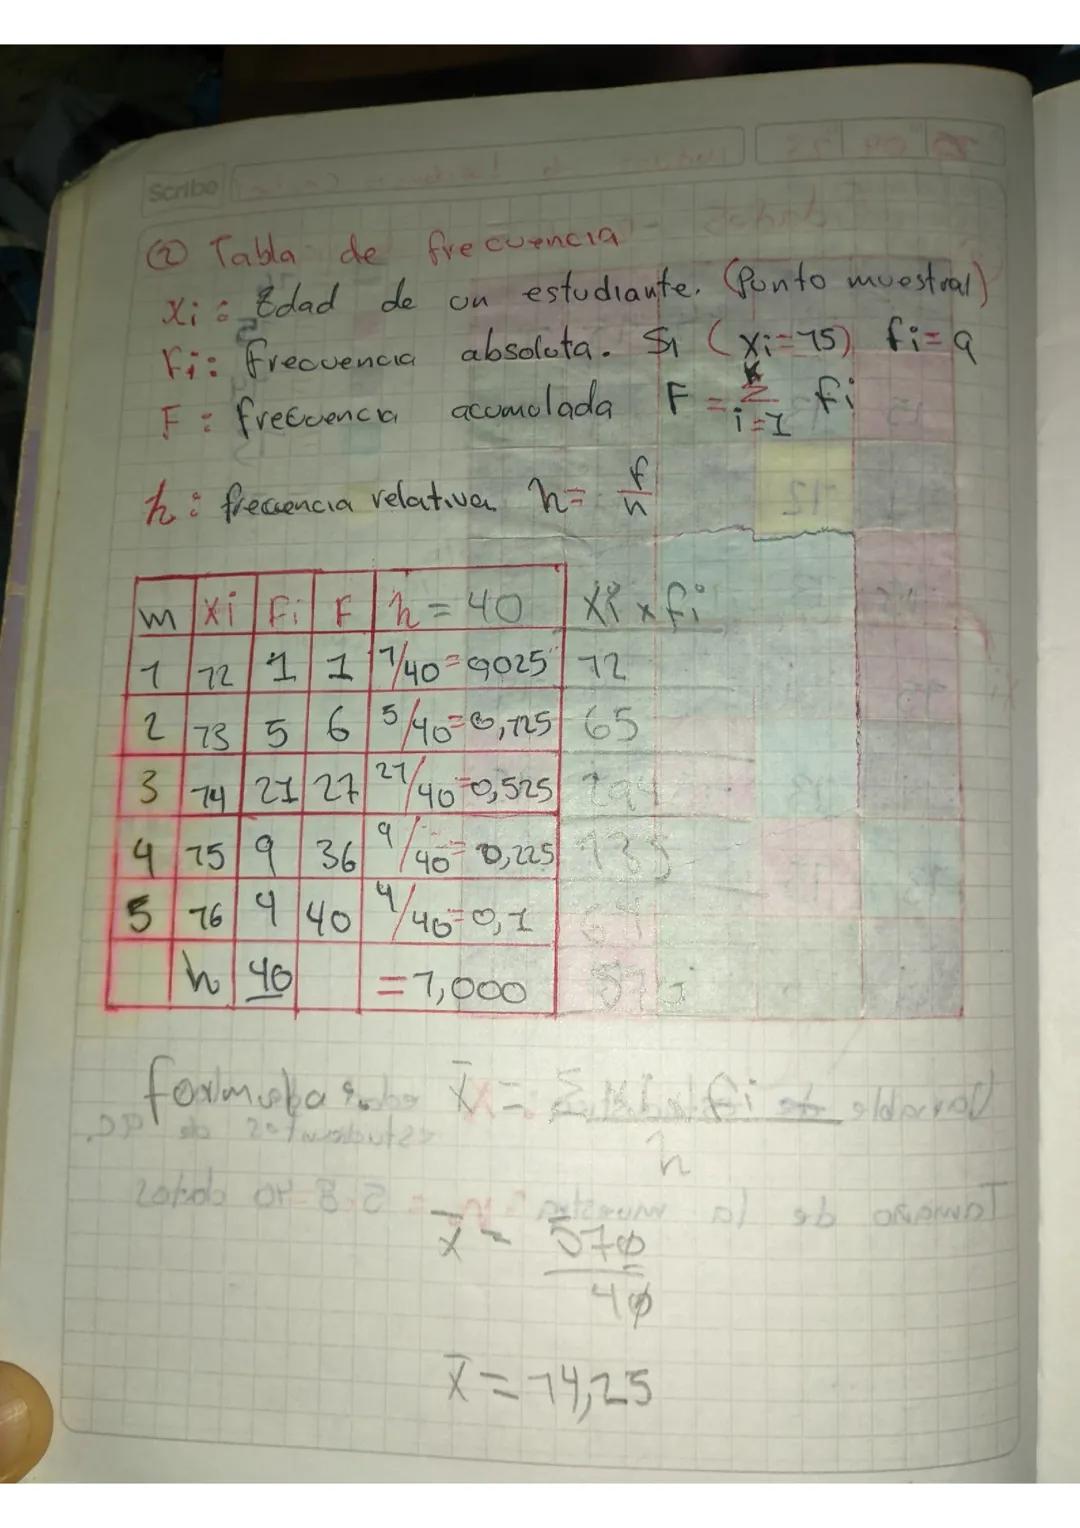 Scribe
② Tabla de frecuencia
Xi: Edad de un estudiante. (Punto muestral)
Fi: frecuencia absoluta. Si (Xi=15) fi=9
F: frecuencia acumulada F = Σ fi
K
i=1
h: frecuencia relativa h= f/n
m Xi Fi F h=40 Xi x fi
1 12 1 1 1/40=0,025 12
2 13 5 6 5/40=0,125 65
3 14 21 27 21/40=0,525 294
4 15 9 36 9/40=0,225 135
5 16 4 40 4/40=0,1 64
n 40 =1,000 570
formula X̄ = Σ
n
X̄ = 570
40
X̄ = 14,25